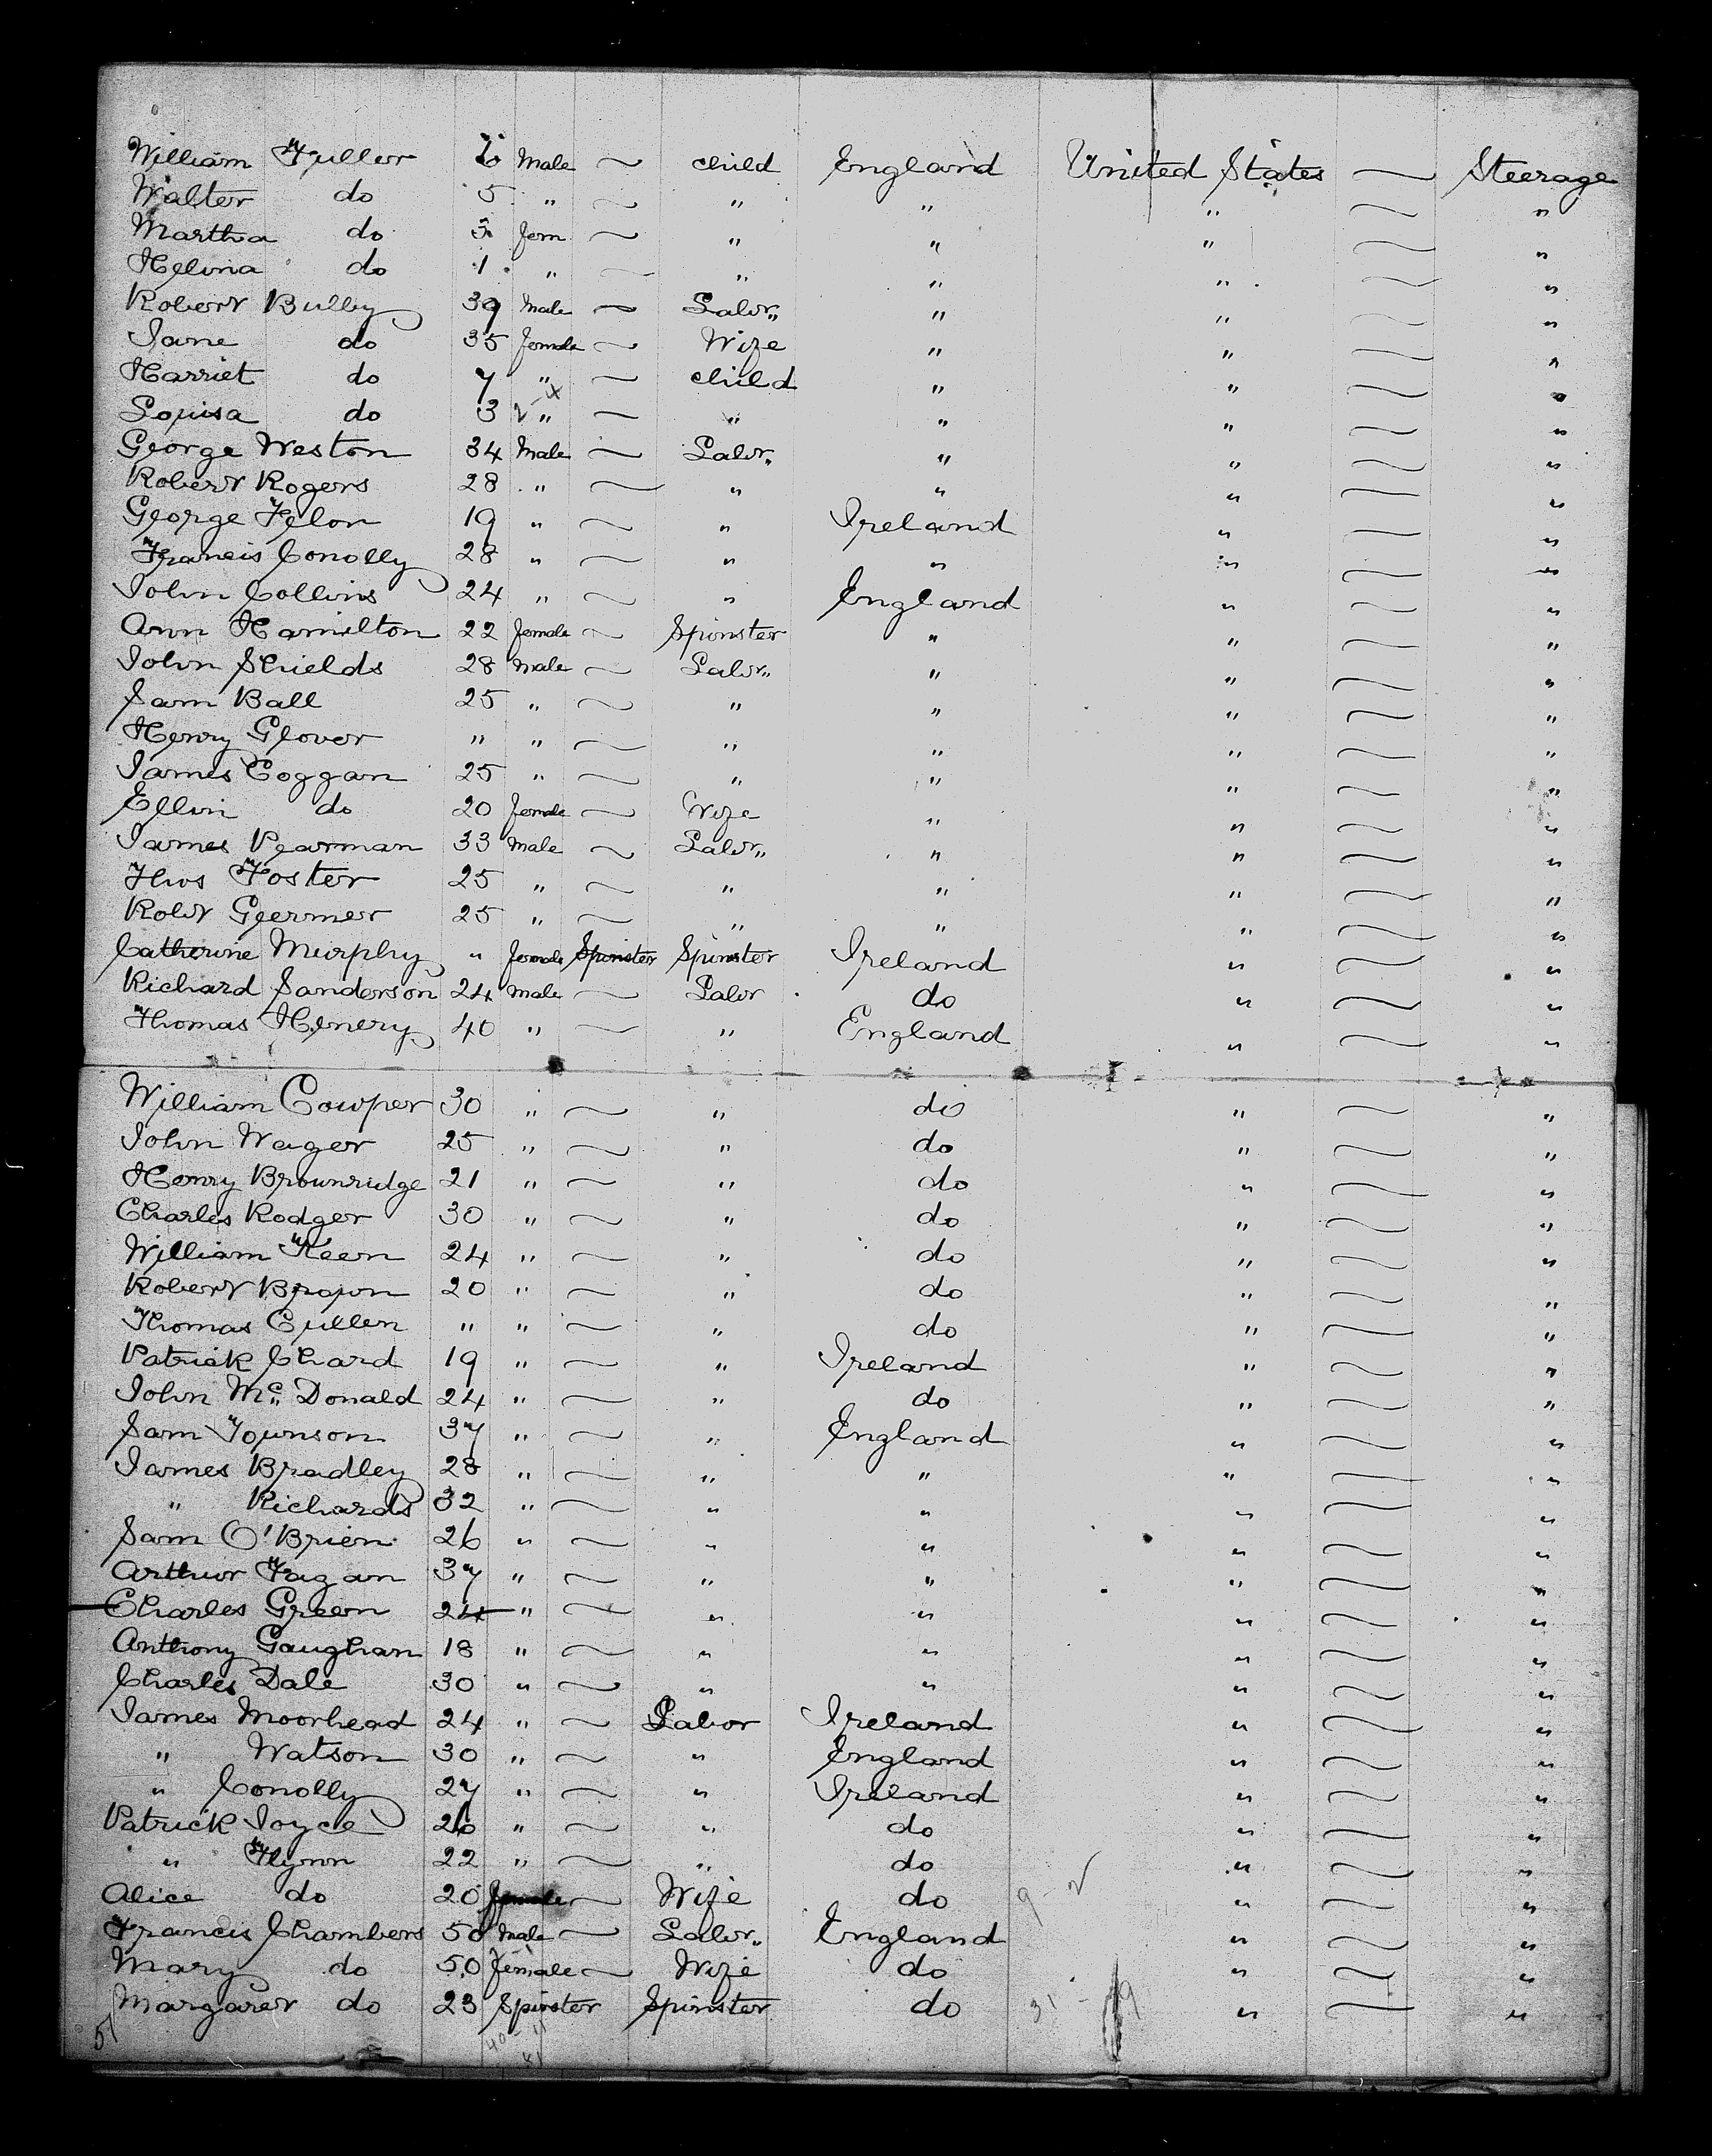 William Fuller Male ~ child England United States ~ Steerage
Walter do 5 " ~ " " " ~ "
Martha do 3 fem ~ " " " ~ "
Helina do 1 " ~ " " " ~ "
Robert Bulby 39 Male ~ Labr " " ~ "
Jane do 35 female ~ Wife " " ~ "
Harriet do 7 " ~ child " " ~ "
Louisa do 3 " ~ " " " ~ "
George Weston 34 Male ~ Labr " " ~ "
Robert Rogers 28 " ~ " " " ~ "
George Felon 19 " ~ " Ireland " ~ "
Francis Conolly 28 " ~ " " " ~ "
John Collins 24 " ~ " England " ~ "
Ann Hamilton 22 female ~ Spinster " " ~ "
John Shields 28 Male ~ Labr " " ~ "
Sam Ball 25 " ~ " " " ~ "
Henry Glover " " ~ " " " ~ "
James Coggan 25 " ~ " " " ~ "
Ellin do 20 female ~ Wife " " ~ "
James Pearman 33 Male ~ Labr " " ~ "
Thos Foster 25 " ~ " " " ~ "
Robt Germer 25 " ~ " " " ~ "
Catherine Murphy " female Spinster Spinster Ireland " ~ "
Richard Sanderson 24 Male ~ Labr do " ~ "
Thomas Henery 40 " ~ " England " ~ "
William Cowper 30 " ~ " do " ~ "
John Wager 25 " ~ " do " ~ "
Henry Brownridge 21 " ~ " do " ~ "
Charles Rodger 30 " ~ " do " ~ "
William Keen 24 " ~ " do " ~ "
Robert Brown 20 " ~ " do " ~ "
Thomas Cullen " " ~ " do " ~ "
Patrick Chard 19 " ~ " Ireland " ~ "
John Mc Donald 24 " ~ " do " ~ "
Sam Tounson 37 " ~ " England " ~ "
James Bradley 28 " ~ " " " ~ "
" Richards 32 " ~ " " " ~ "
Sam O'Brien 26 " ~ " " " ~ "
Arthur Fagan 37 " ~ " " " ~ "
Charles Green 24 " ~ " " " ~ "
Anthony Gaughan 18 " ~ " " " ~ "
Charles Dale 30 " ~ " " " ~ "
James Moorhead 24 " ~ Labor Ireland " ~ "
" Watson 30 " ~ " England " ~ "
" Conolly 27 " ~ " Ireland " ~ "
Patrick Joyce 26 " ~ " do " ~ "
" Flynn 22 " ~ " do " ~ "
Alice do 20 female ~ Wife do " ~ "
Francis Chambers 50 Male ~ Labr England " ~ "
Mary do 50 female ~ Wife do " ~ "
Margaret do 23 Spinster Spinster do " ~ "